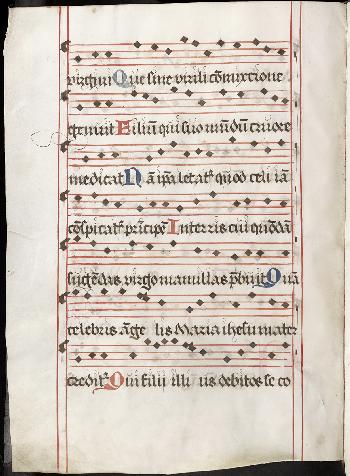 virgini Que sine virili cōmixtione
genuit Filiū qui suo mūdū cruore
medicat Nā ipsa letat quod celi iā
cōspicat prīcipē In terris cui quōdā
sugēdas virgo mamillas prebuit Quā
celebris āge lis Maria ihesu mater
credit Qui filii illi us debitos se co